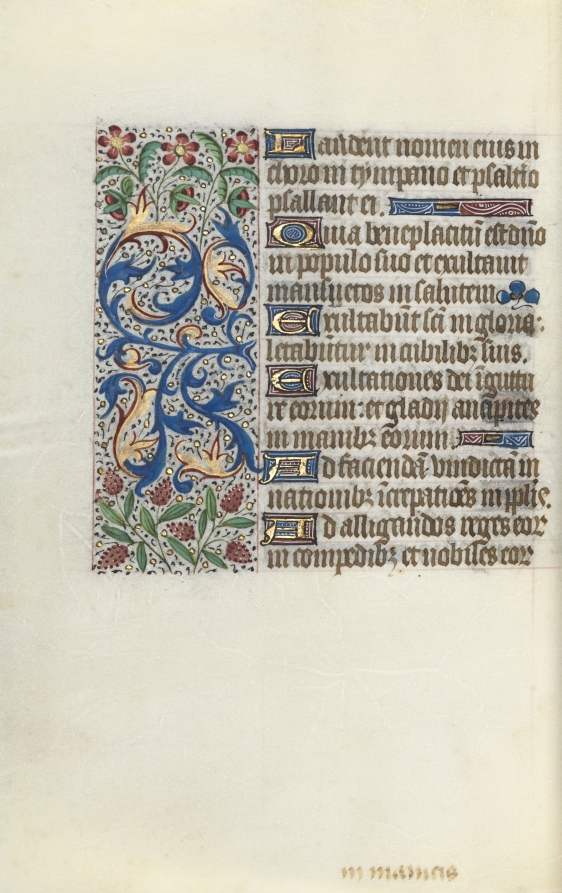 Laudent nomen eius in
choro in tympano et psalterio
psallant ei.
Quia beneplacitū est dño
in populo suo et exultauit
mansuetos in salutem
Exultabūt scī in gloria:
letabūtur in cubilibꝫ suis.
Exultationes dei ī guttu
re eorum: et gladij ancipites
in manibꝫ eorum
Ad faciendā vindictā in
nationibꝫ īcrepatiōes in pplis.
Ad alligandos reges eoꝝ
in compedibꝫ et nobiles eoꝝ
in manicis